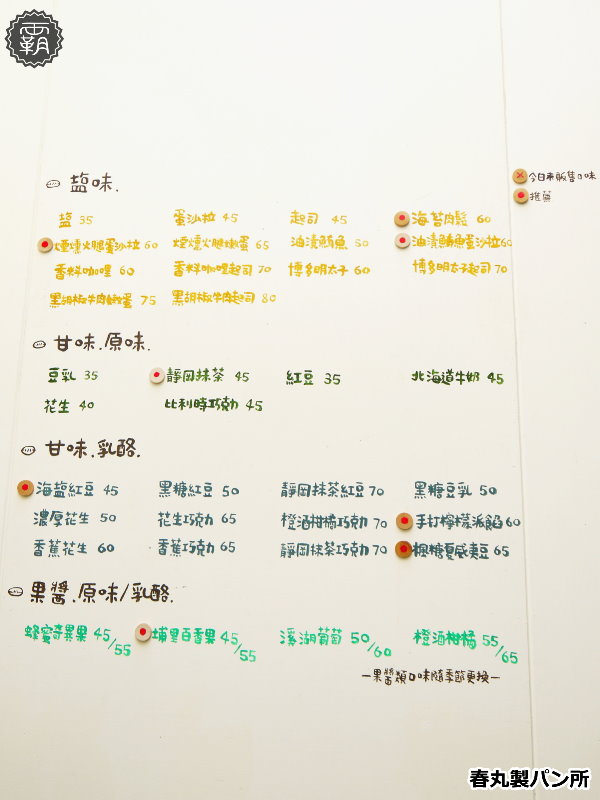 霸
今日未販售口味
推薦
塩味.
塩 35 蛋沙拉 45 起司 45 海苔肉鬆 60
煙燻火腿蛋沙拉 60 煙燻火腿嫩蛋 65 油漬鮪魚 50 油漬鮪魚蛋沙拉 60
香料咖哩 60 香料咖哩起司 70 博多明太子 60 博多明太子起司 70
黑胡椒牛肉嫩蛋 75 黑胡椒牛肉起司 80
甘味.原味.
豆乳 35 靜岡抹茶 45 紅豆 35 北海道牛奶 45
花生 40 比利時巧克力 45
甘味.乳酪.
海塩紅豆 45 黑糖紅豆 50 靜岡抹茶紅豆 70 黑糖豆乳 50
濃厚花生 50 花生巧克力 65 橙酒柑橘巧克力 70 手打檸檬派餡 60
香蕉花生 60 香蕉巧克力 65 靜岡抹茶巧克力 70 楓糖夏威夷豆 65
果醬.原味/乳酪.
蜂蜜奇異果 45/55 埔里百香果 45/55 溪湖葡萄 50/60 橙酒柑橘 55/65
—果醬類口味隨季節更換—
春丸製パン所